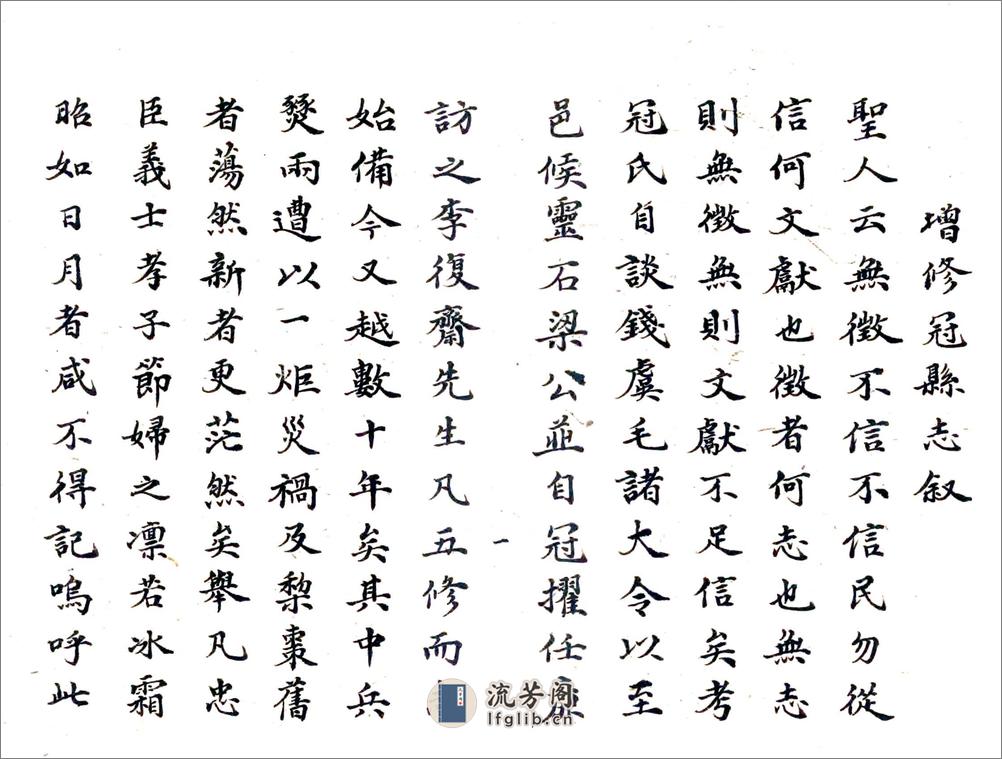 增修冠縣志叙
聖人云無徵不信不信民勿從
信何文獻也徵者何志也無志
則無徵無則文獻不足信矣考
冠氏自談錢虞毛諸大令以至
邑候靈石梁公並自冠擢任
一
訪之李復齋先生凡五修而
始備今又越數十年矣其中兵
燹雨遭以一炬災禍及梨棗舊
者蕩然新者更茫然矣舉凡忠
臣義士孝子節婦之凛若冰霜
昭如日月者咸不得記嗚呼此
流芳阁
lfglib.cn